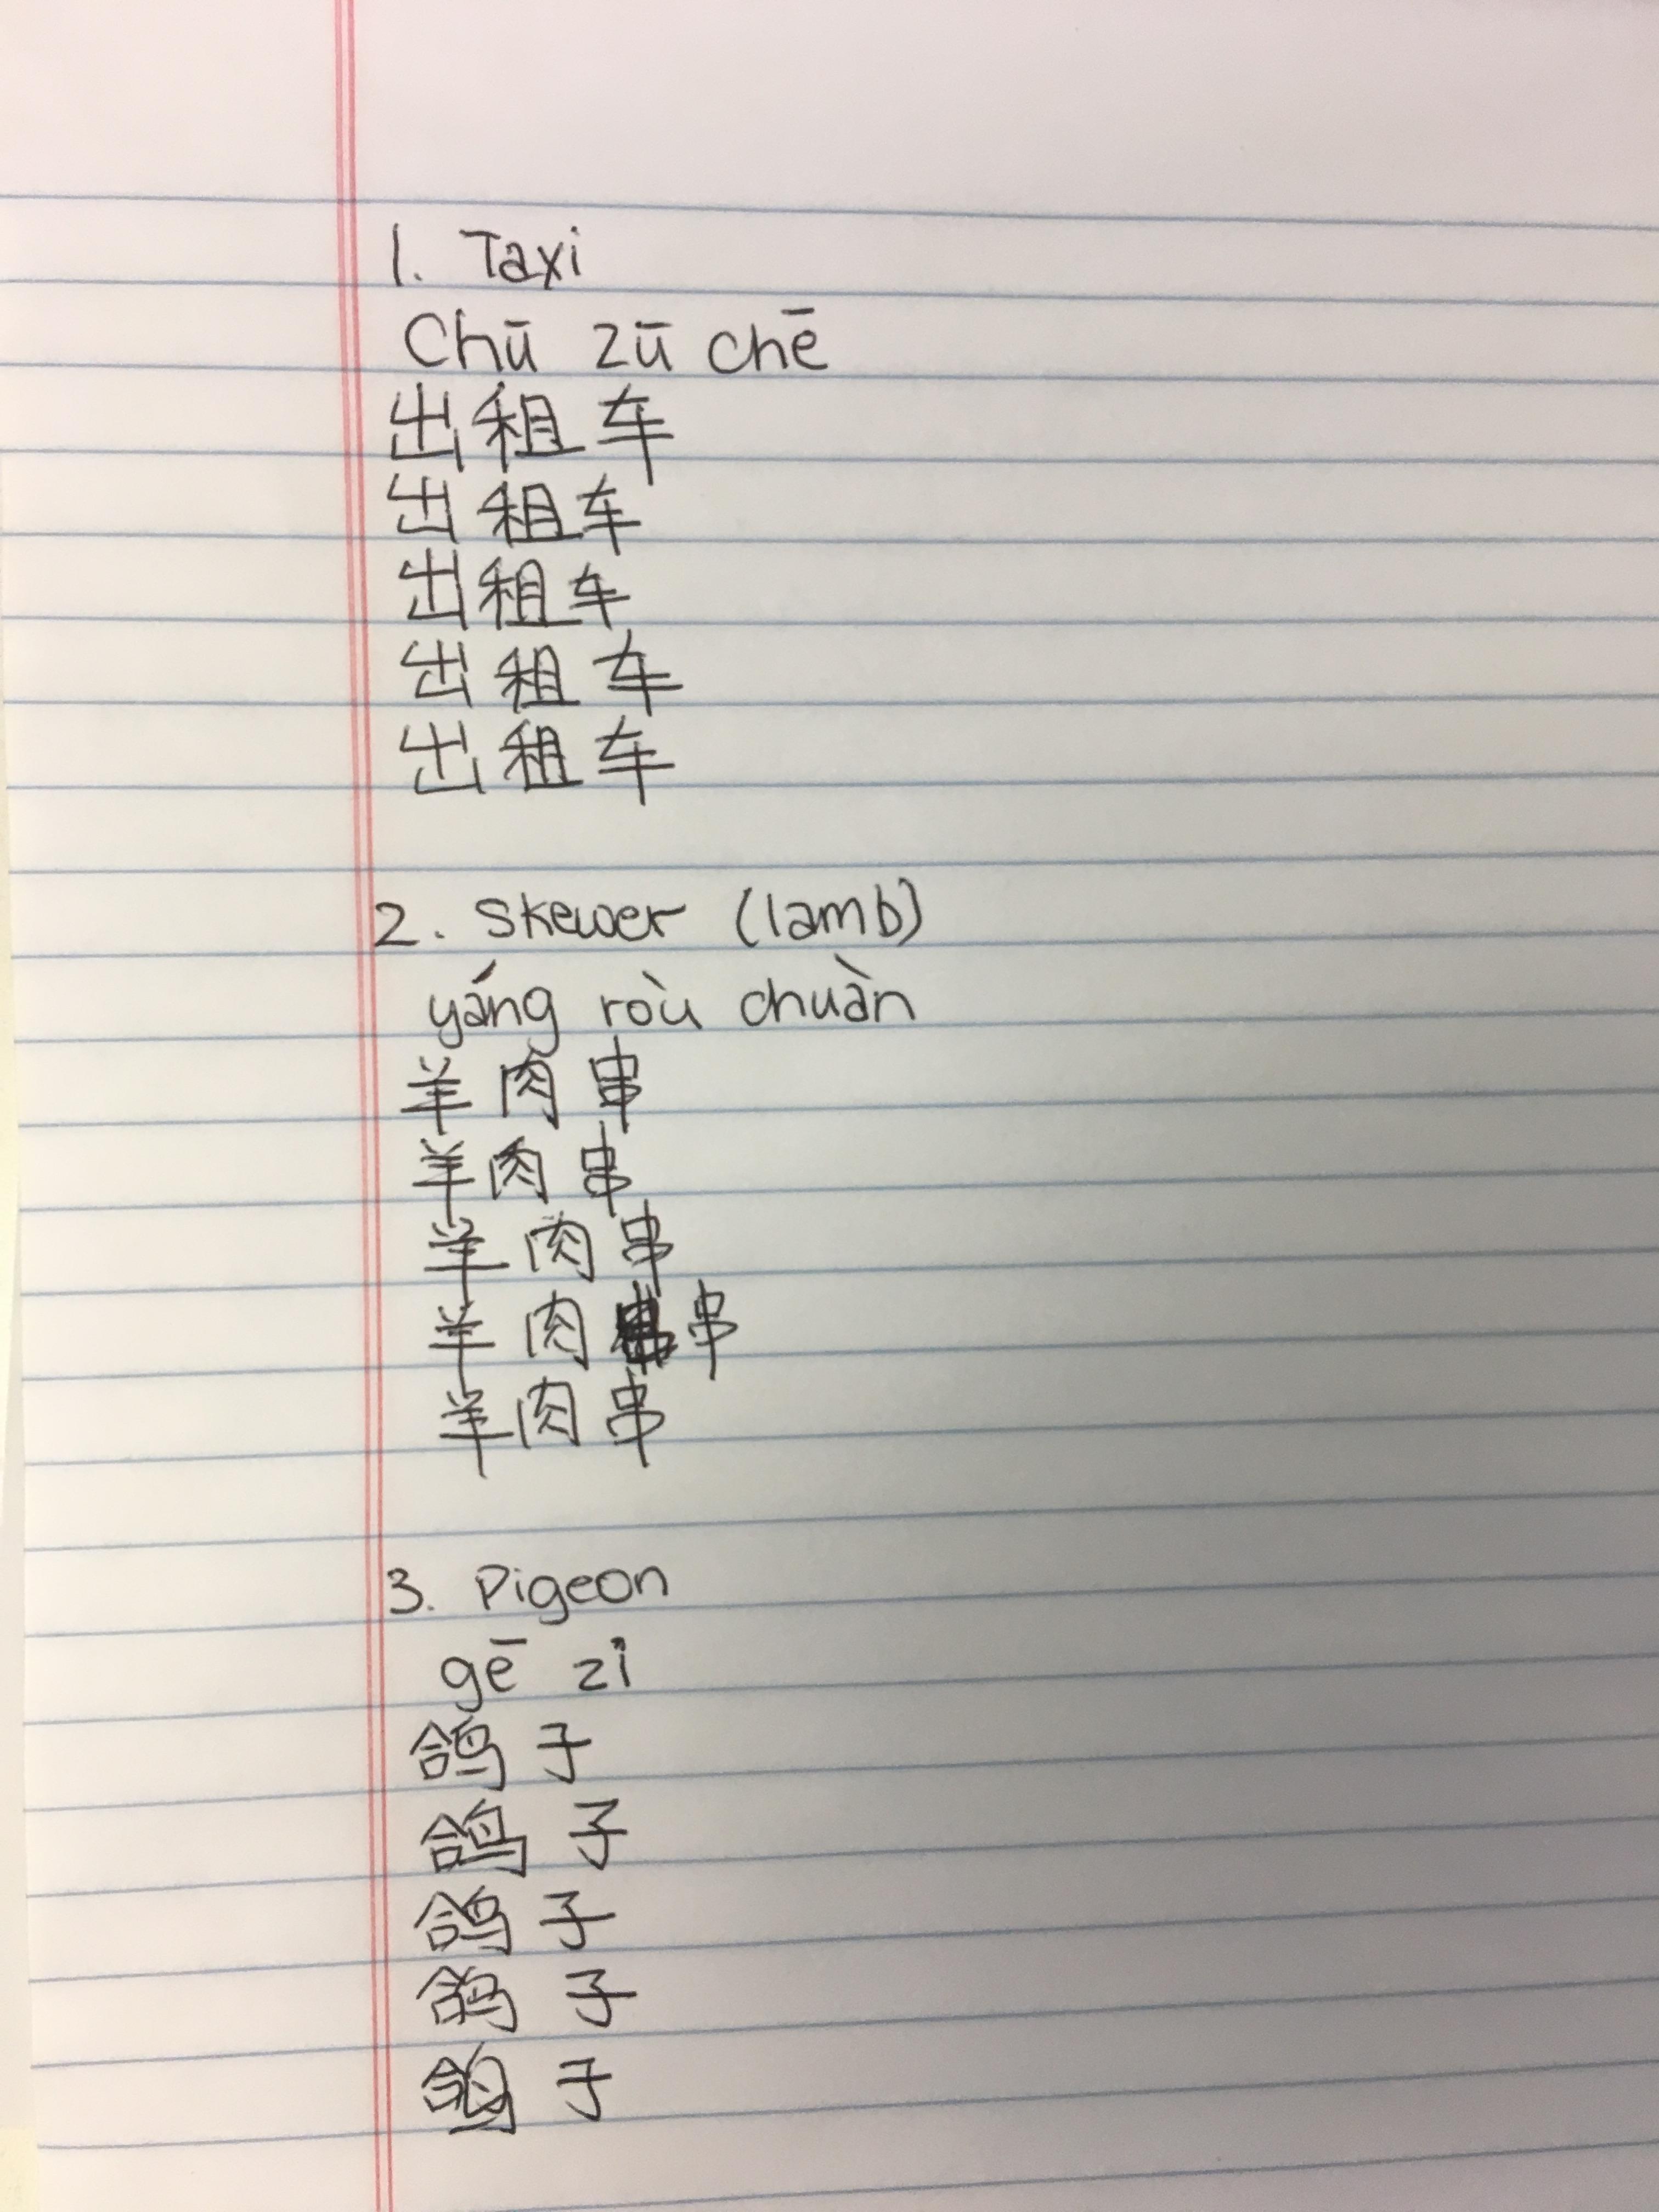 1. Taxi
Chū zū chē
出租车
出租车
出租车
出租车
出租车
2. Skewer (lamb)
yáng ròu chuàn
羊肉串
羊肉串
羊肉串
羊肉串
羊肉串
3. Pigeon
gē zi
鸽子
鸽子
鸽子
鸽子
鸽子